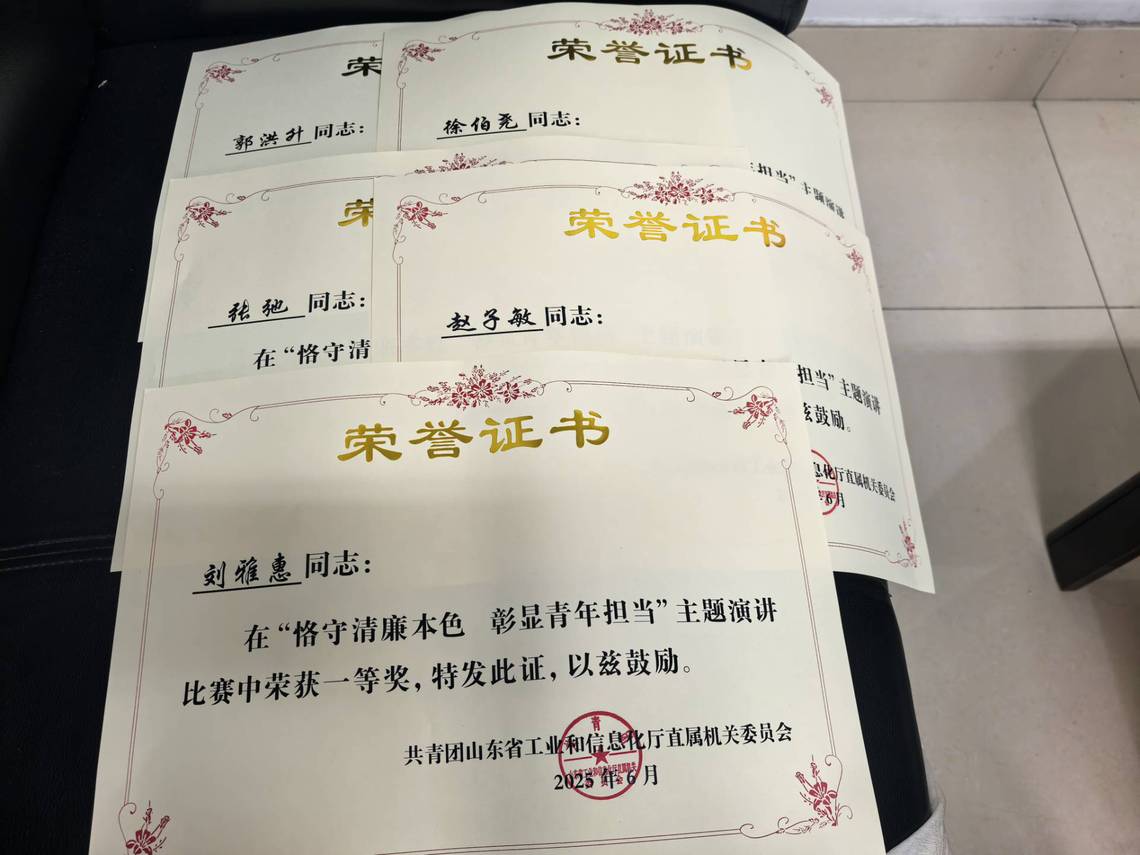 荣
郭洪升同志：
荣誉证书
徐伯尧同志：
年担当”主题演讲
荣
张弛同志：
在“恪守清
荣誉证书
赵子敏同志：
担当”主题演讲
兹鼓励。
息化厅直属机关委员会
6月
荣誉证书
刘雅惠同志：
在“恪守清廉本色 彰显青年担当”主题演讲
比赛中荣获一等奖，特发此证，以兹鼓励。
共青团山东省工业和信息化厅直属机关委员会
2025年6月